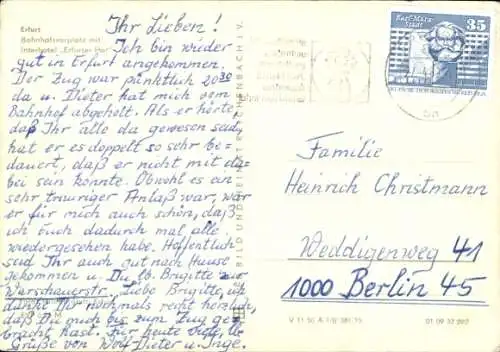 Erfurt
Bahnhofsvorplatz mit
Interhotel „Erfurter Hof"
Ihr Lieben!
Ich bin wieder
gut in Erfurt angekommen.
Der Zug war pünktlich 20³⁰
da u. Dieter hat mich vom
Bahnhof abgeholt. Als er hörte,
daß Ihr alle da gewesen seid,
hat er es doppelt so sehr be-
dauert, daß er nicht mit da-
bei sein konnte. Obwohl es ein
sehr trauriger Anlaß war, war
er für mich auch schön, daß
ich Euch dadurch mal alle
wiedergesehen habe. Hoffentlich
seid Ihr auch gut nach Hause
gekommen u. Du, lb. Brigitte zur
Warschauerstr. Liebe Brigitte, ich
danke Dir nochmals recht herzlich,
daß Du mich bis zum Zug ge-
bracht hast. Für heute viele, lb.
Grüße von Wolf-Dieter u. Inge.
BILD UND HEIMAT REICHENBACH I. V.
Karl-Marx-
Stadt
35
Familie
Heinrich Christmann
Weddigenweg 41
1000 Berlin 45
V 11 50 A 1/B
01 09 37